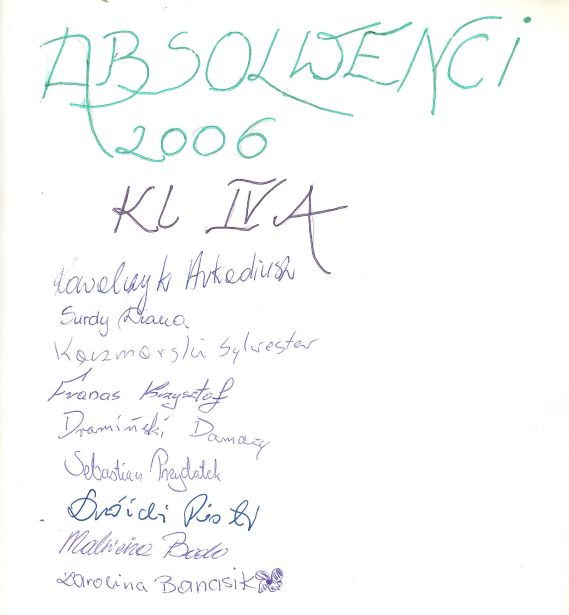 ABSOLWENCI
2006
KL IV A
Kowalczyk Arkadiusz
Surdy Diana
Kaczmarski Sylwester
Franas Krzysztof
Dramiński Damazy
Sebastian Przydatek
Piotr
Malwina Bado
Karolina Banasik